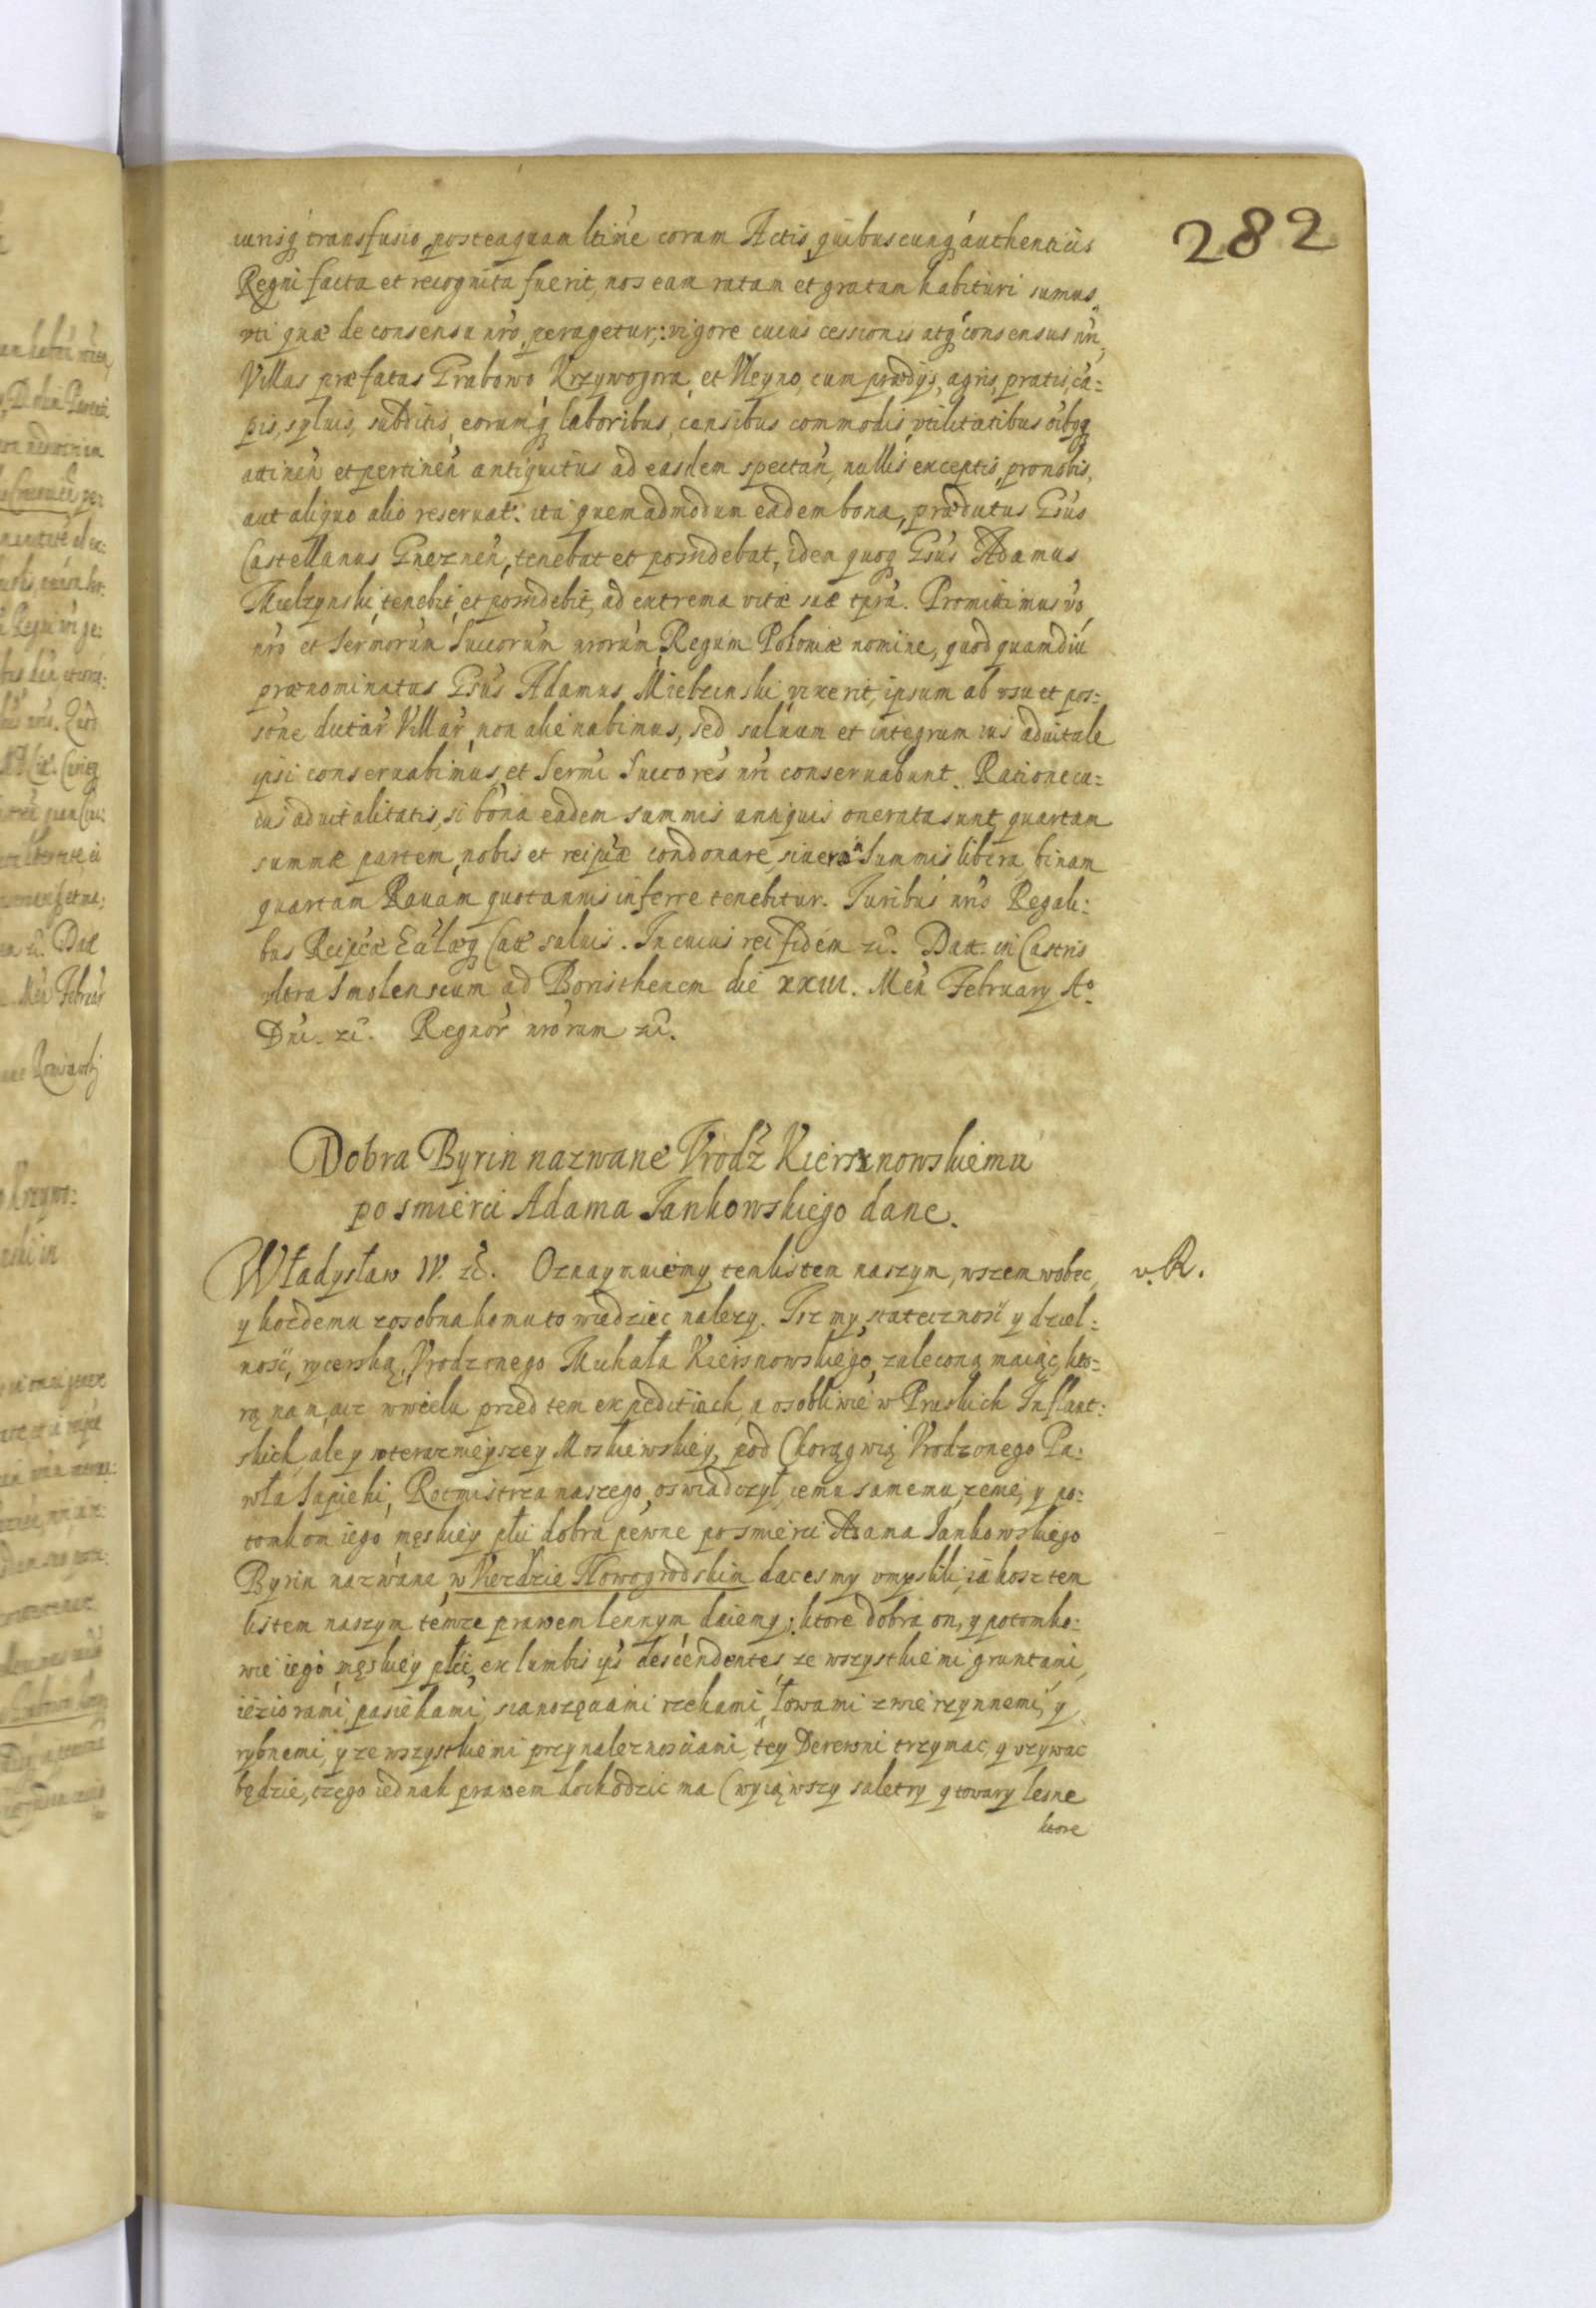 282
iurisq́ transfusio, posteaquam ltiḿe coram Actis, quibuscunq́ authenticis
Regni facta et recognita fuerit, nos eam ratam et gratam habituri sumus,
vti quæ de consensu nr̃o, peragetur: vigore cuius cessionis atq́ consensus nr̃i,
Villas præfatas Grabowo, Krzywogora, et Wleyno, cum prædijs, agris, pratis, ca-
pis, syluis, subditis, eorumq́ laboribus, censibus commodis, vtilitatibus oibq́
attineñ et pertineñ antiquitus ad easdem spectañ, nullis exceptis, pro nobis,
aut aliquo alio reseruat: ita quemadmodum eadem bona, prædictus Gsus
Castellanus Gnezneñ, tenebat et possidebat, idem quoq́ Gsus Adamus
Mielzynski, tenebit, et possidebit, ad extrema vitæ suæ tpra. Promittimus vo,
nr̃o et Sermorum Succorum nrorum, Regum Poloniæ nomine, quod quamdiu
prænominatus Gsus Adamus Mielzinski vixerit, ipsum ab vsu et pos-
sone dictar Villar, non alienabimus, sed saluum et integrum ius aduitale
ipsi conseruabimus, et Sermi Succores nri conseruabunt. Ratione ca-
ius aduitalitatis, si bona eadem summis antiquis onerata sunt, quartam
summæ partem, nobis et reipcæ condonare, sin vero a summis libera, binam
quartam Rauam quotannis inferre tenebitur. Iuribus nris Regali-
bus Reipcæ Ecclæq́ Catt saluis. In cuius rei fidem zc. Datt. in Castris
vltra Smolenscum ad Boristhenem die XXIII. Men February Ao
Dni. zc. Regnor nrorum zc.
Dobra Byrin nazwane Vrodz Kiersznowskiemu
po smierci Adama Jankowskiego dane.
Władysław IV. zc. Oznaymuiemy tem listem naszym, wszem wobec, v. R.
y kożdemu zosobna komu to wiedziec nalezy. Isz my, stateczność y dziel-
ność, rycerską, Vrodzonego Michała Kiersnowskiego, zaleconą maiąc, kto-
rą nam, acz wwielu przed tem expeditiach, a osobliwie w Pruskich Inflant-
skich, ale y wteraznieyszey Moskiewskiey, pod Chorągwią Vrodzonego Pa-
wła Sapiehi, Rotmistrza naszego, oswiadczył, iemu samemu, zenie, y po-
tomkom iego męskiey płci dobra pewne po smierci Adama Jankowskiego
Byrin nazwane, w Viezdzie Nowogrodskim dacesmy vmyslili, iakosz tem
listem naszym temze prawem lennym daiemy: ktore dobra on, y potomko-
wie iego męskiey płci, ex lumbis ijs descendentes, ze wszystkiemi gruntami,
ieziorami, pasiekami, sianozęciami rzekami, łowami zwierzynnemi, y
rybnemi, y ze wszystkiemi przynaleznosciami, tey Derewni trzymac, y vzywac
będzie, czego iednak prawem dochodzic ma (wyiąwszy saletry y towary lesne
ktore